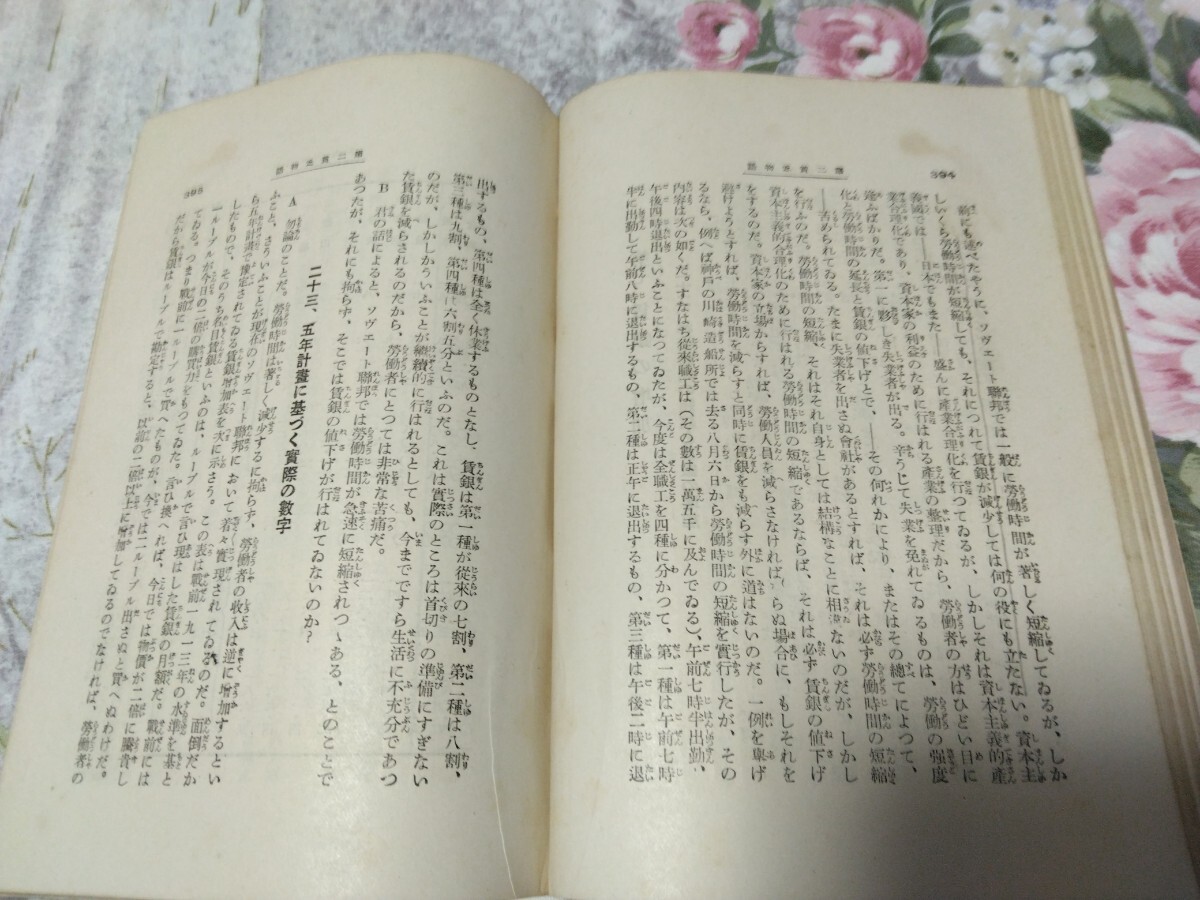 394
第二貧乏物語
前にも述べたやうに、ソヴェート聯邦では一般に勞働時間が著しく短縮してゐるが、しか
しいくら勞働時間が短縮しても、それにつれて賃銀が減少しては何の役にも立たない。資本主
義國では――日本でもまた――盛んに產業合理化を行つてゐるが、しかしそれは資本主義的產
業合理化であり、資本家の利益のために行はれる產業の整理だから、勞働者の方はひどい目に
逢ふばかりだ。第一に夥しき失業者が出る。辛うじて失業を免れてゐるものは、勞働の强度
化と勞働時間の延長と賃銀の値下げとで、――その何れかにより、またはその總てによつて、
――苦められてゐる。たまに失業者を出さぬ會社があるとすれば、それは必ず勞働時間の短縮
を行ふのだ。勞働時間の短縮、それはそれ自身としては結構なことに相違ないのだが、しかし
資本主義的合理化のために行はれる勞働時間の短縮であるならば、それは必ず賃銀の値下げ
をするのだ。資本家の立場からすれば、勞働人員を減らさなければならぬ場合に、もしそれを
避けようとすれば、勞働時間を減らすと同時に賃銀をも減らす外に道はないのだ。一例を擧げ
るなら、例へば神戶の川崎造船所では去る八月六日から勞働時間の短縮を實行したが、その
內容は次の如くだ。すなはち從來職工は(その數は一萬五千に及んでゐる)、午前七時半出勤、
午後四時退出といふことになつてゐたが、今度は全職工を四種に分かつて、第一種は午前七時
半に出勤して午前八時に退出するもの、第二種は正午に退出するもの、第三種は午後二時に退
第二貧乏物語
395
出するもの、第四種は全く休業するものとなし、賃銀は第一種が從來の七割、第二種は八割、
第三種は九割、第四種は六割五分といふのだ。これは實際のところは首切りの準備にすぎない
のだが、しかしかういふことが繼續的に行はれるとしても、今までですら生活に不充分であつ
た賃銀を減らされるのだから、勞働者にとつては非常な苦痛だ。
B 君の話によると、ソヴェート聯邦では勞働時間が急速に短縮されつゝある、とのことで
あつたが、それにも拘らず、そこでは賃銀の値下げが行はれてゐないのか?
二十三、五年計畫に基づく實際の數字
A 勿論のことだ。勞働時間は著しく減少するに拘らず、勞働者の收入は逆に增加するとい
ふこと、さういふことが現在のソヴェート聯邦において着々實現されてゐるのだ。面倒だか
ら五年計畫で豫定されてゐる賃銀增加表を次に示さう。この表は戰前一九一三年の水準を基と
したもので、そのうち名目賃銀といふのは、ルーブルで言ひ現はした賃銀の月額だ。戰前には
一ルーブルが今日の二倍の購買力をもつてゐた。言ひ換へれば、今日では物價が二倍に騰貴し
てゐる。つまり戰前に一ルーブルで買へたものが、今では二ルーブル出さぬと買へぬわけだ。
だから賃銀はルーブルで勘定すると、以前の二倍以上に增加してゐるのでなければ、勞働者の